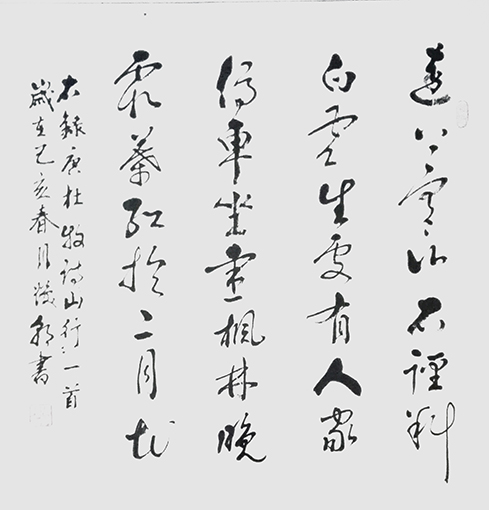 遠上寒山石徑斜
白雲生處有人家
停車坐愛楓林晚
霜葉紅於二月花
右錄唐杜牧詩山行一首
歲在己亥春月書